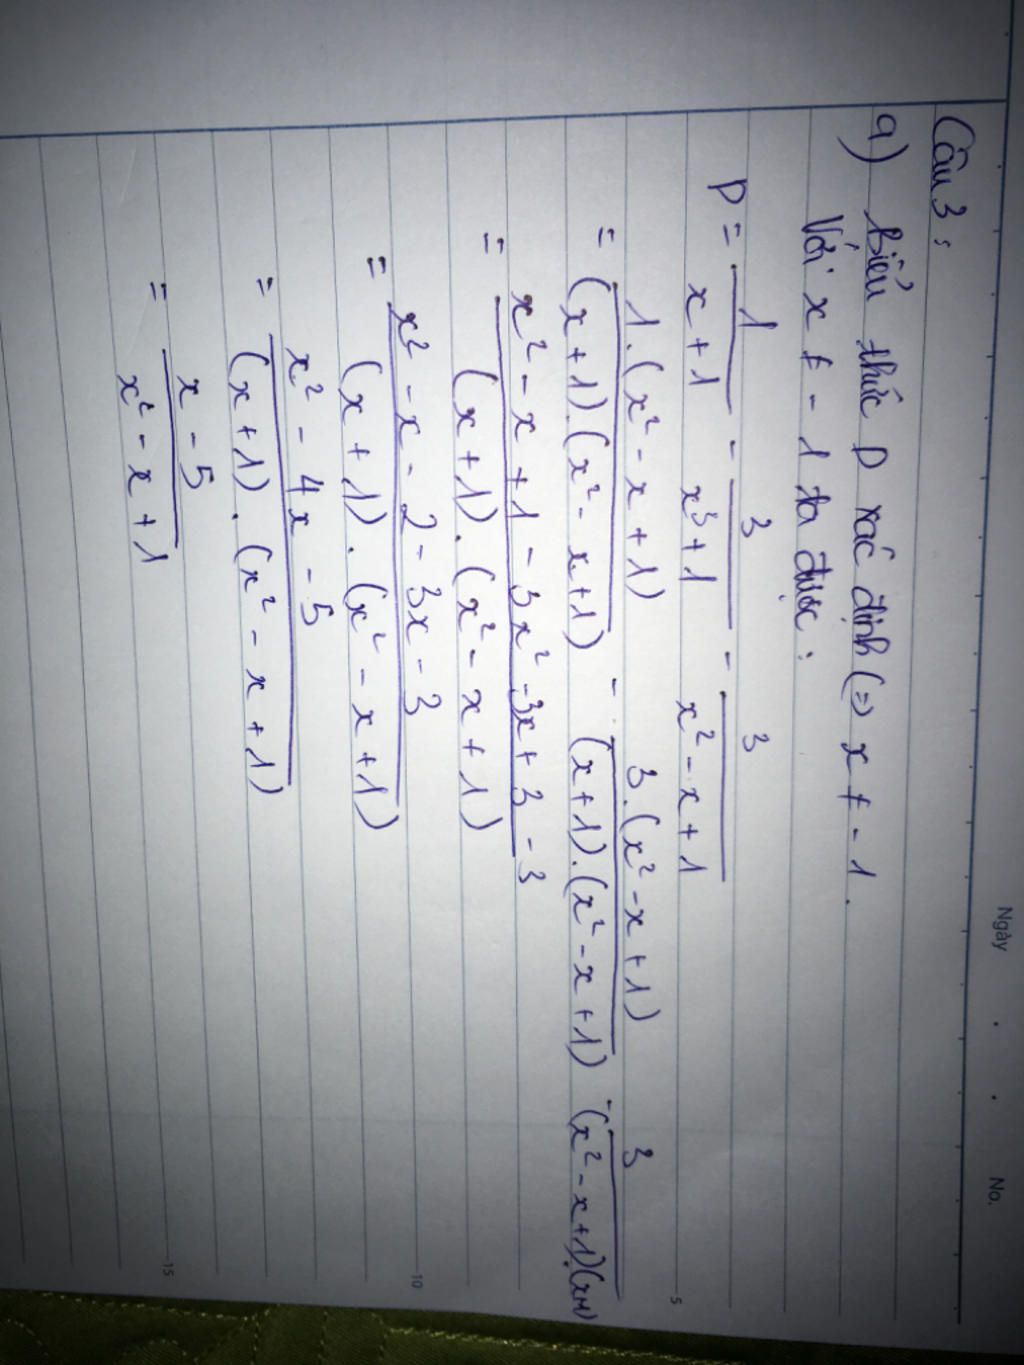 Ngày . . No.
Câu 3:
a) biểu thức P xác định (=) x ≠ -1.
Với x ≠ -1 ta được:
P = 1/(x+1) - 3/(x³+1) - 3/(x²-x+1)
= 1.(x²-x+1)/((x+1).(x²-x+1)) - 3.(x²-x+1)/((x+1).(x²-x+1)) - 3/((x²-x+1)(x+1))
= (x²-x+1-3x²-3x+3-3)/((x+1).(x²-x+1))
= (x²-x-2-3x-3)/((x+1).(x²-x+1))
= (x²-4x-5)/((x+1).(x²-x+1))
= (x-5)/(x²-x+1)
5
10
15